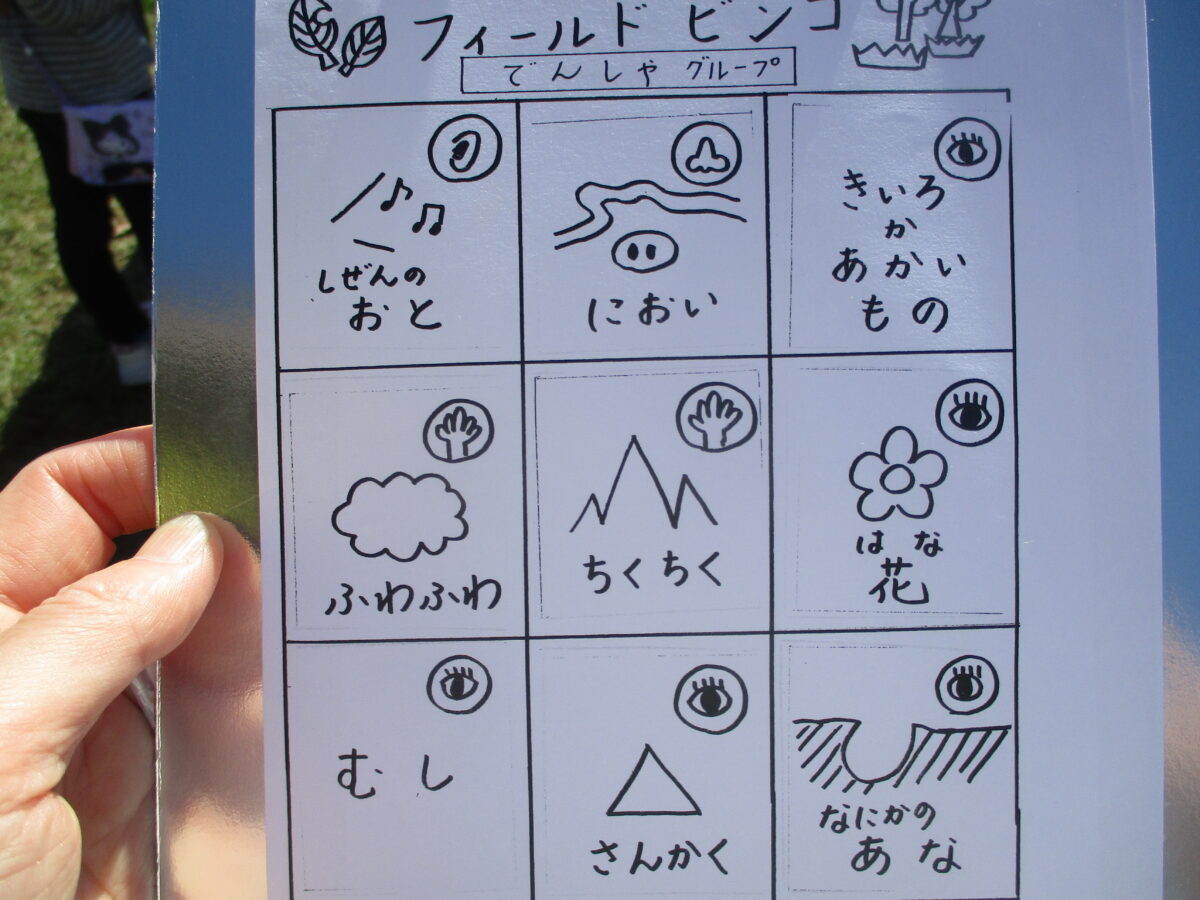 フィールド ビンゴ
でんしゃ グループ
しぜんの
おと
におい
きいろ
か
あかい
もの
ふわふわ
ちくちく
はな
花
むし
さんかく
なにかの
あな